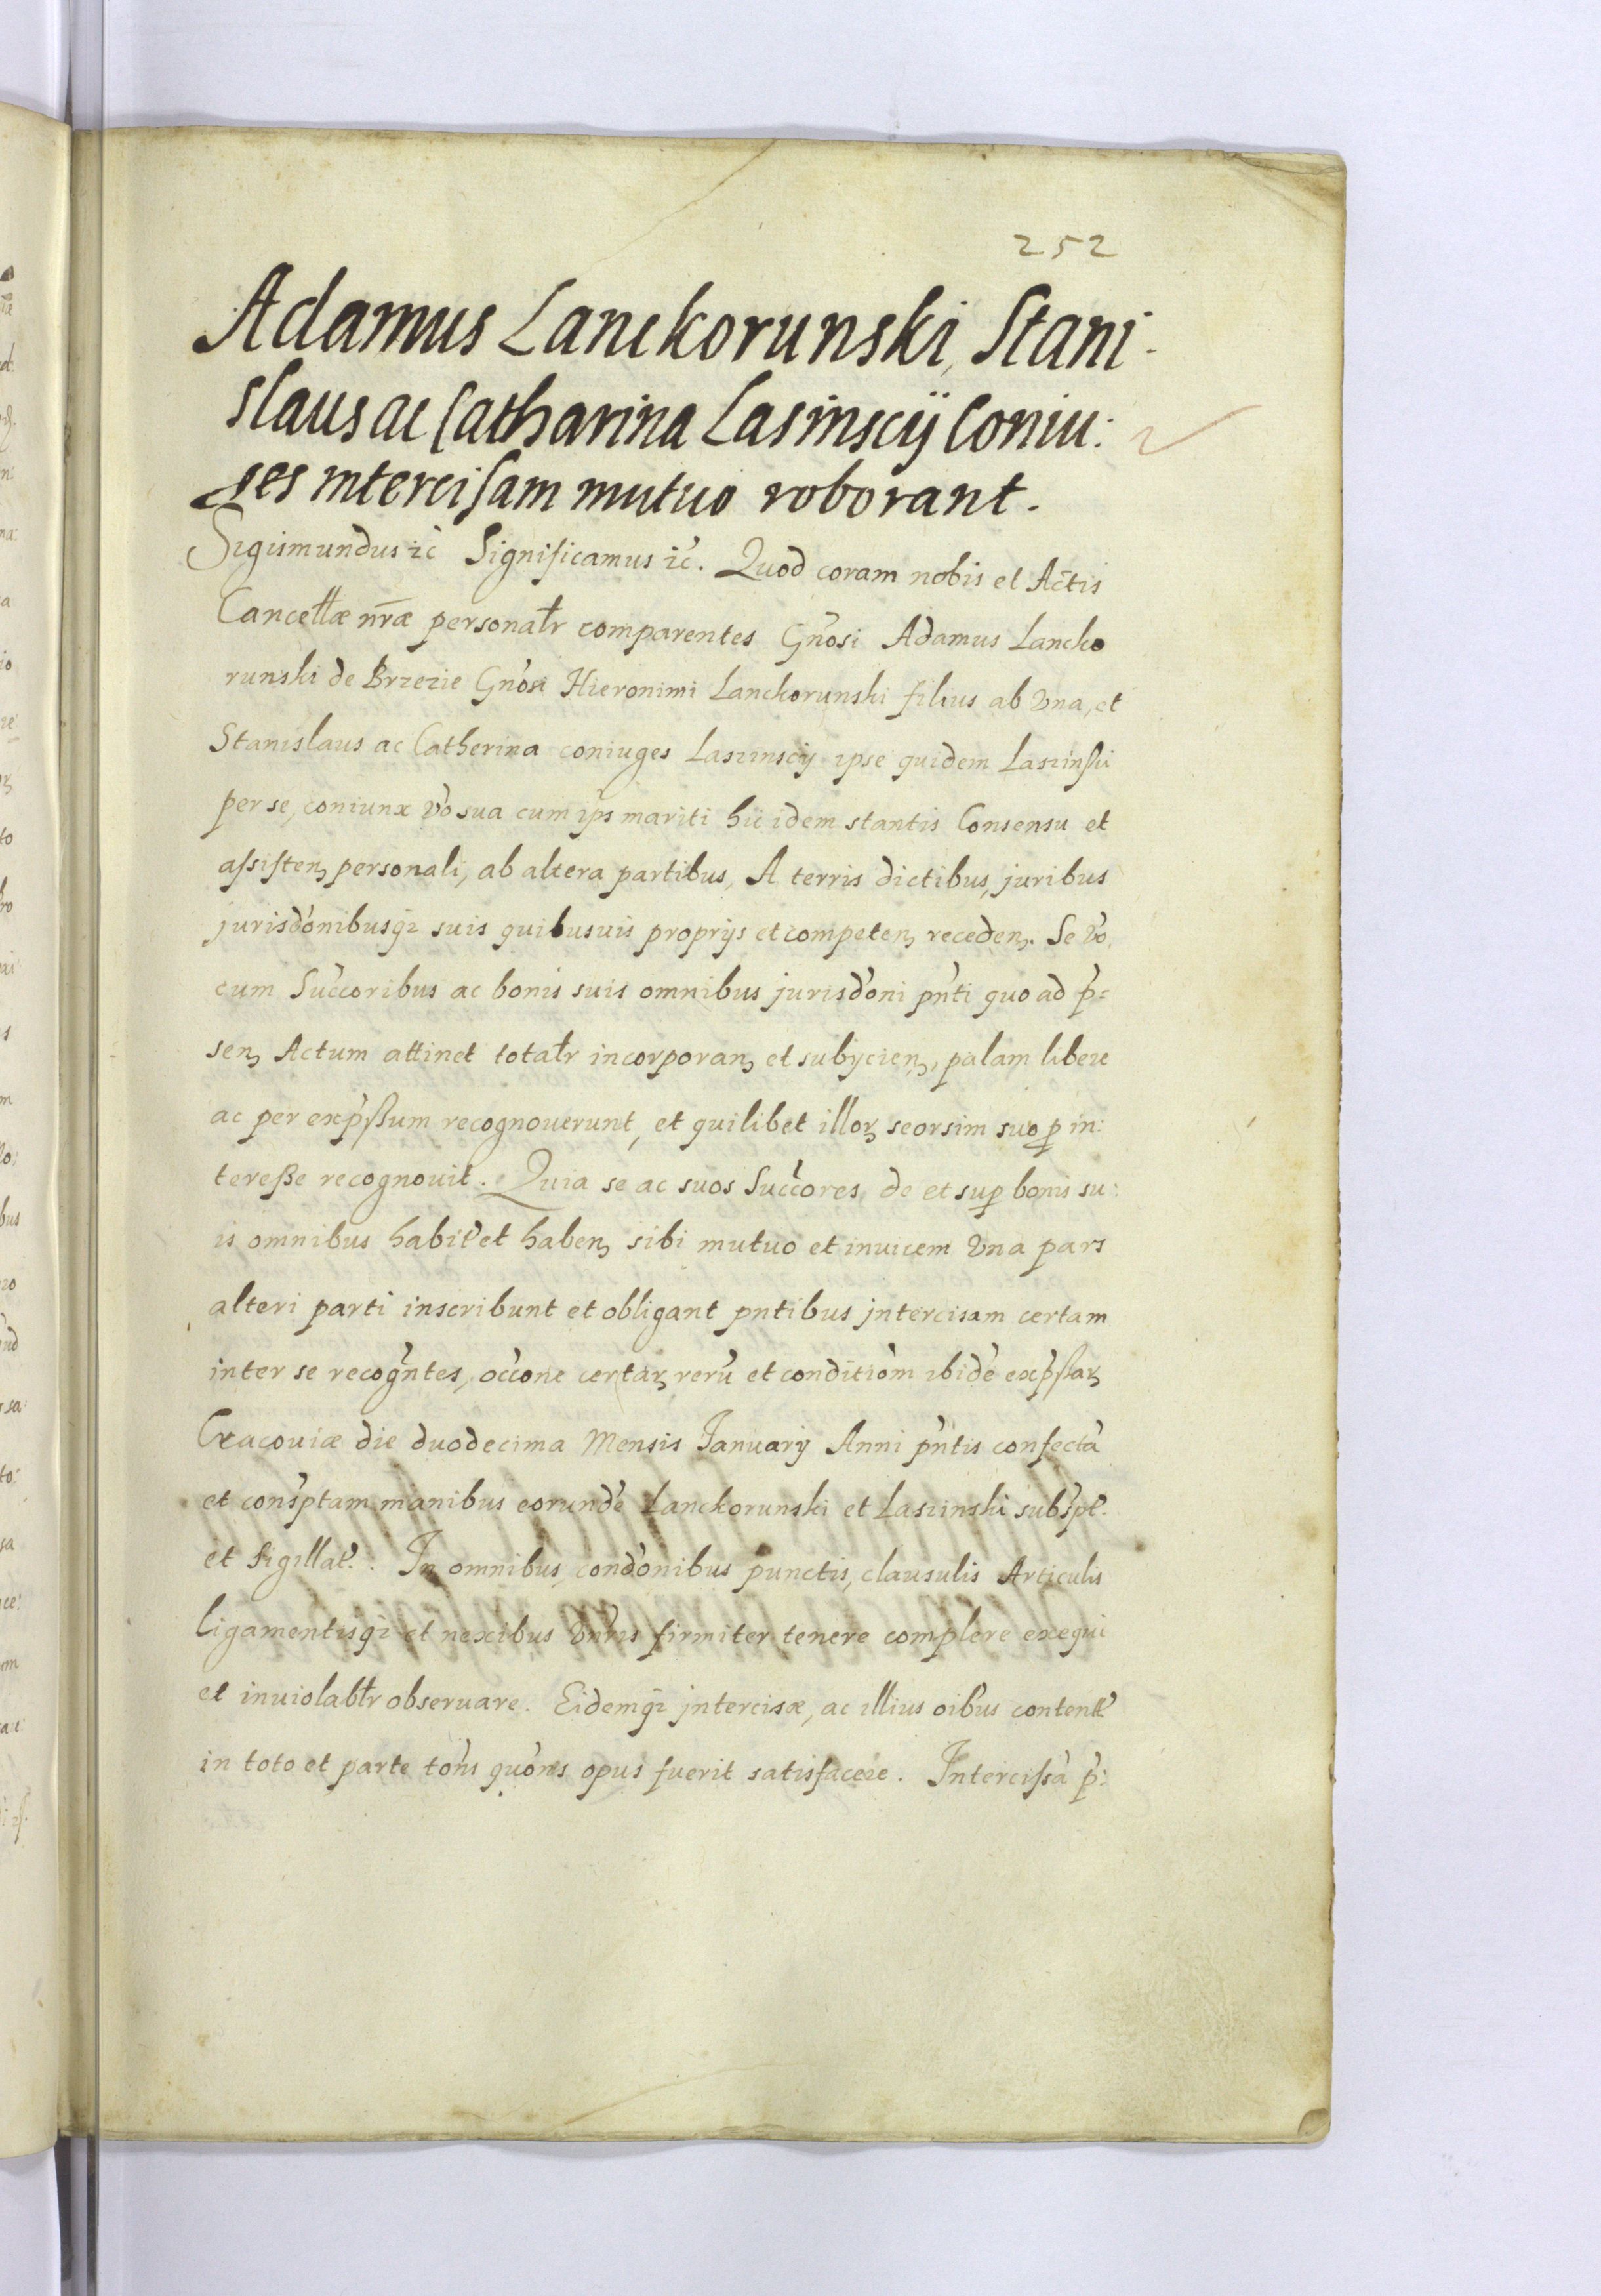 252
Adamus Lanckorunski, Stani-
slaus ac Catharina Lasinscij Coniu:
ges intercisam mutuo roborant.
Sigismundus ꝛc̃ Significamus ꝛc̃. Quod coram nobis et Actis
Cancellæ nr̃æ personalr̃ comparentes Gñosi Adamus Lancko
runski de Brzezie Gñosi Hieronimi Lanckorunski filius ab vna, et
Stanislaus ac Catherina coniuges Laszinscij ipse quidem Laszinski
per se, coniunx v̓o sua cum ip̃s mariti hic idem stantis Consensu et
assistenꝫ personali, ab altera partibus, A terris dictibus, juribus
jurisd̓onibusqꝫ suis quibusuis proprijs et competenꝫ recedenꝫ. Se v̓o,
cum Succ̓oribus ac bonis suis omnibus jurisd̓oni pn̓ti quo ad p̓=
senꝫ Actum attinet totalr̃ incorporanꝫ et subijcienꝫ, palam libere
ac per exp̓ssum recognouerunt, et quilibet illoꝝ seorsim suo ꝓ in:
teresse recognouit. Quia se ac suos Succ̓ores, de et suꝑ bonis su:
is omnibus habit̓ et habenꝫ sibi mutuo et inuicem vna pars
alteri parti inscribunt et obligant pntibus jntercisam certam
inter se recog̓ntes, occ̓one certaꝝ rerũ et conditiom̓ ibidẽ exp̓ssaꝝ
Cracouiæ die duodecima Mensis Ianuarij Anni pn̓tis confectã
et cons̓ptam manibus eorundẽ Lanckorunski et Laszinski subs̓pt̓.
et sigillat̓. In omnibus cond̓onibus punctis, clausulis Articulis
ligamentisqꝫ et nexibus vnr̃is firmiter tenere complere exequi
et inuiolablr̃ obseruare. Eidemqꝫ jntercisæ, ac illius oĩbus content̓
in toto et parte tõns quõns opus fuerit satisfacere. Intercissã p̓: